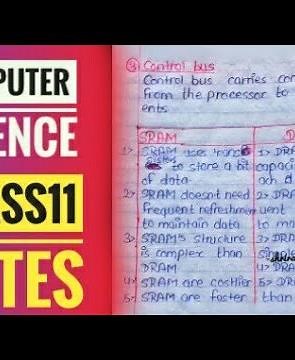 PUTER
ENCE
SS11
TES
③ Control bus
Control bus carries con
from the processor to
ents.
SRAM D
1> SRAM uses 1> DRA
to store a bit capaci
of data. ach d
2> SRAM doesn't need 2> DRA
frequent refreshment
to maintain data
3> SRAM's structure 3> DRA
is complex than
DRAM
4> SRAM are costlier
5> SRAM are faster than